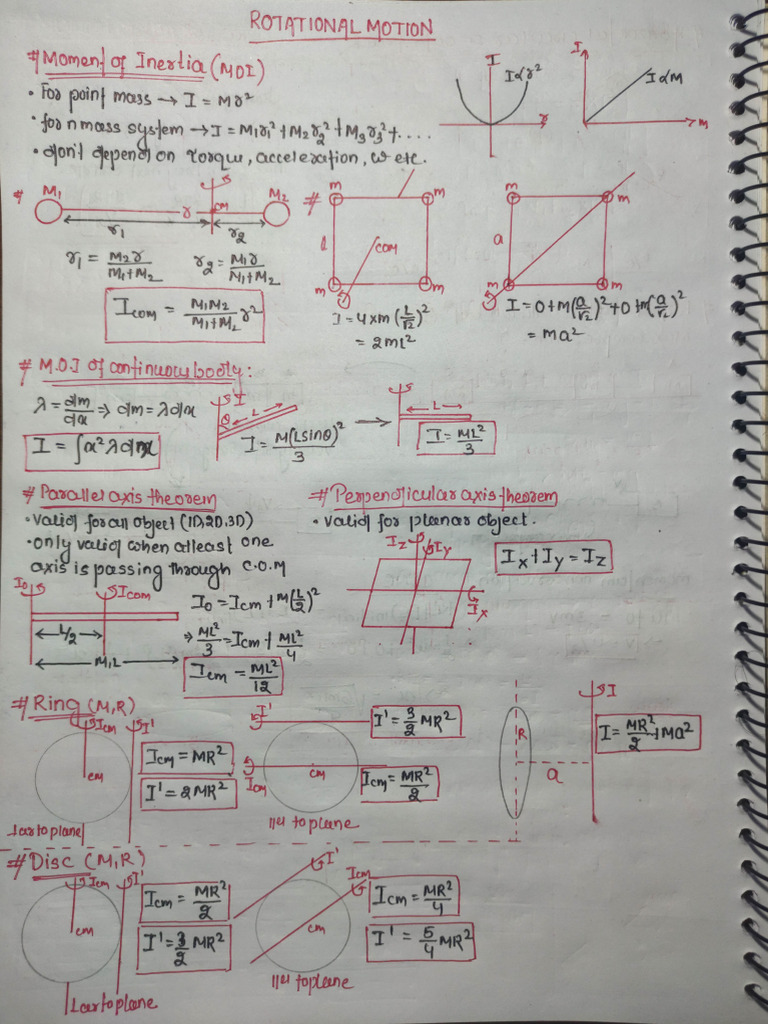 ROTATIONAL MOTION
# Moment of Inertia (MOI)
• For point mass → I = Mr²
• for n mass system → I = M₁r₁² + M₂r₂² + M₃r₃² + ....
• don't depend on Torque, acceleration, ω etc.
I
I∝r²
r
I
I∝M
m
* M₁ r CM M₂
r₁ r₂
r₁ = M₂r/M₁+M₂ r₂ = M₁r/M₁+M₂
I com = M₁M₂/M₁+M₂ r²
# m m
l COM
m m
I = 4×m (L/√2)²
= 2ml²
m m
a
m m
I = 0+m(a/√2)²+0+m(a/√2)²
= ma²
# M.O.I of continuous body:
λ = dm/dx ⇒ dm = λdx
I = ∫x²λdx
I
θ L
I = M(Lsinθ)²/3
→
L
I = ML²/3
# Parallel axis theorem
• valid for all object (1D,2D,3D)
• only valid when atleast one
axis is passing through C.O.M
I₀ Icom
L/2
M,L
I₀ = Icm + M(L/2)²
⇒ ML²/3 = Icm + ML²/4
Icm = ML²/12
# Perpendicular axis theorem
• valid for planar object.
Iz Iy
Ix
Ix + Iy = Iz
# Ring (M,R)
Icm I'
cm
⊥ar to plane
Icm = MR²
I' = 2MR²
I'
I' = 3/2 MR²
cm
Icm
Icm = MR²/2
||ˡˡ to plane
R
a
I
I = MR²/2 + Ma²
# Disc (M,R)
Icm I'
cm
⊥ar to plane
Icm = MR²/2
I' = 3/2 MR²
I'
Icm
cm
||ˡˡ to plane
Icm = MR²/4
I' = 5/4 MR²